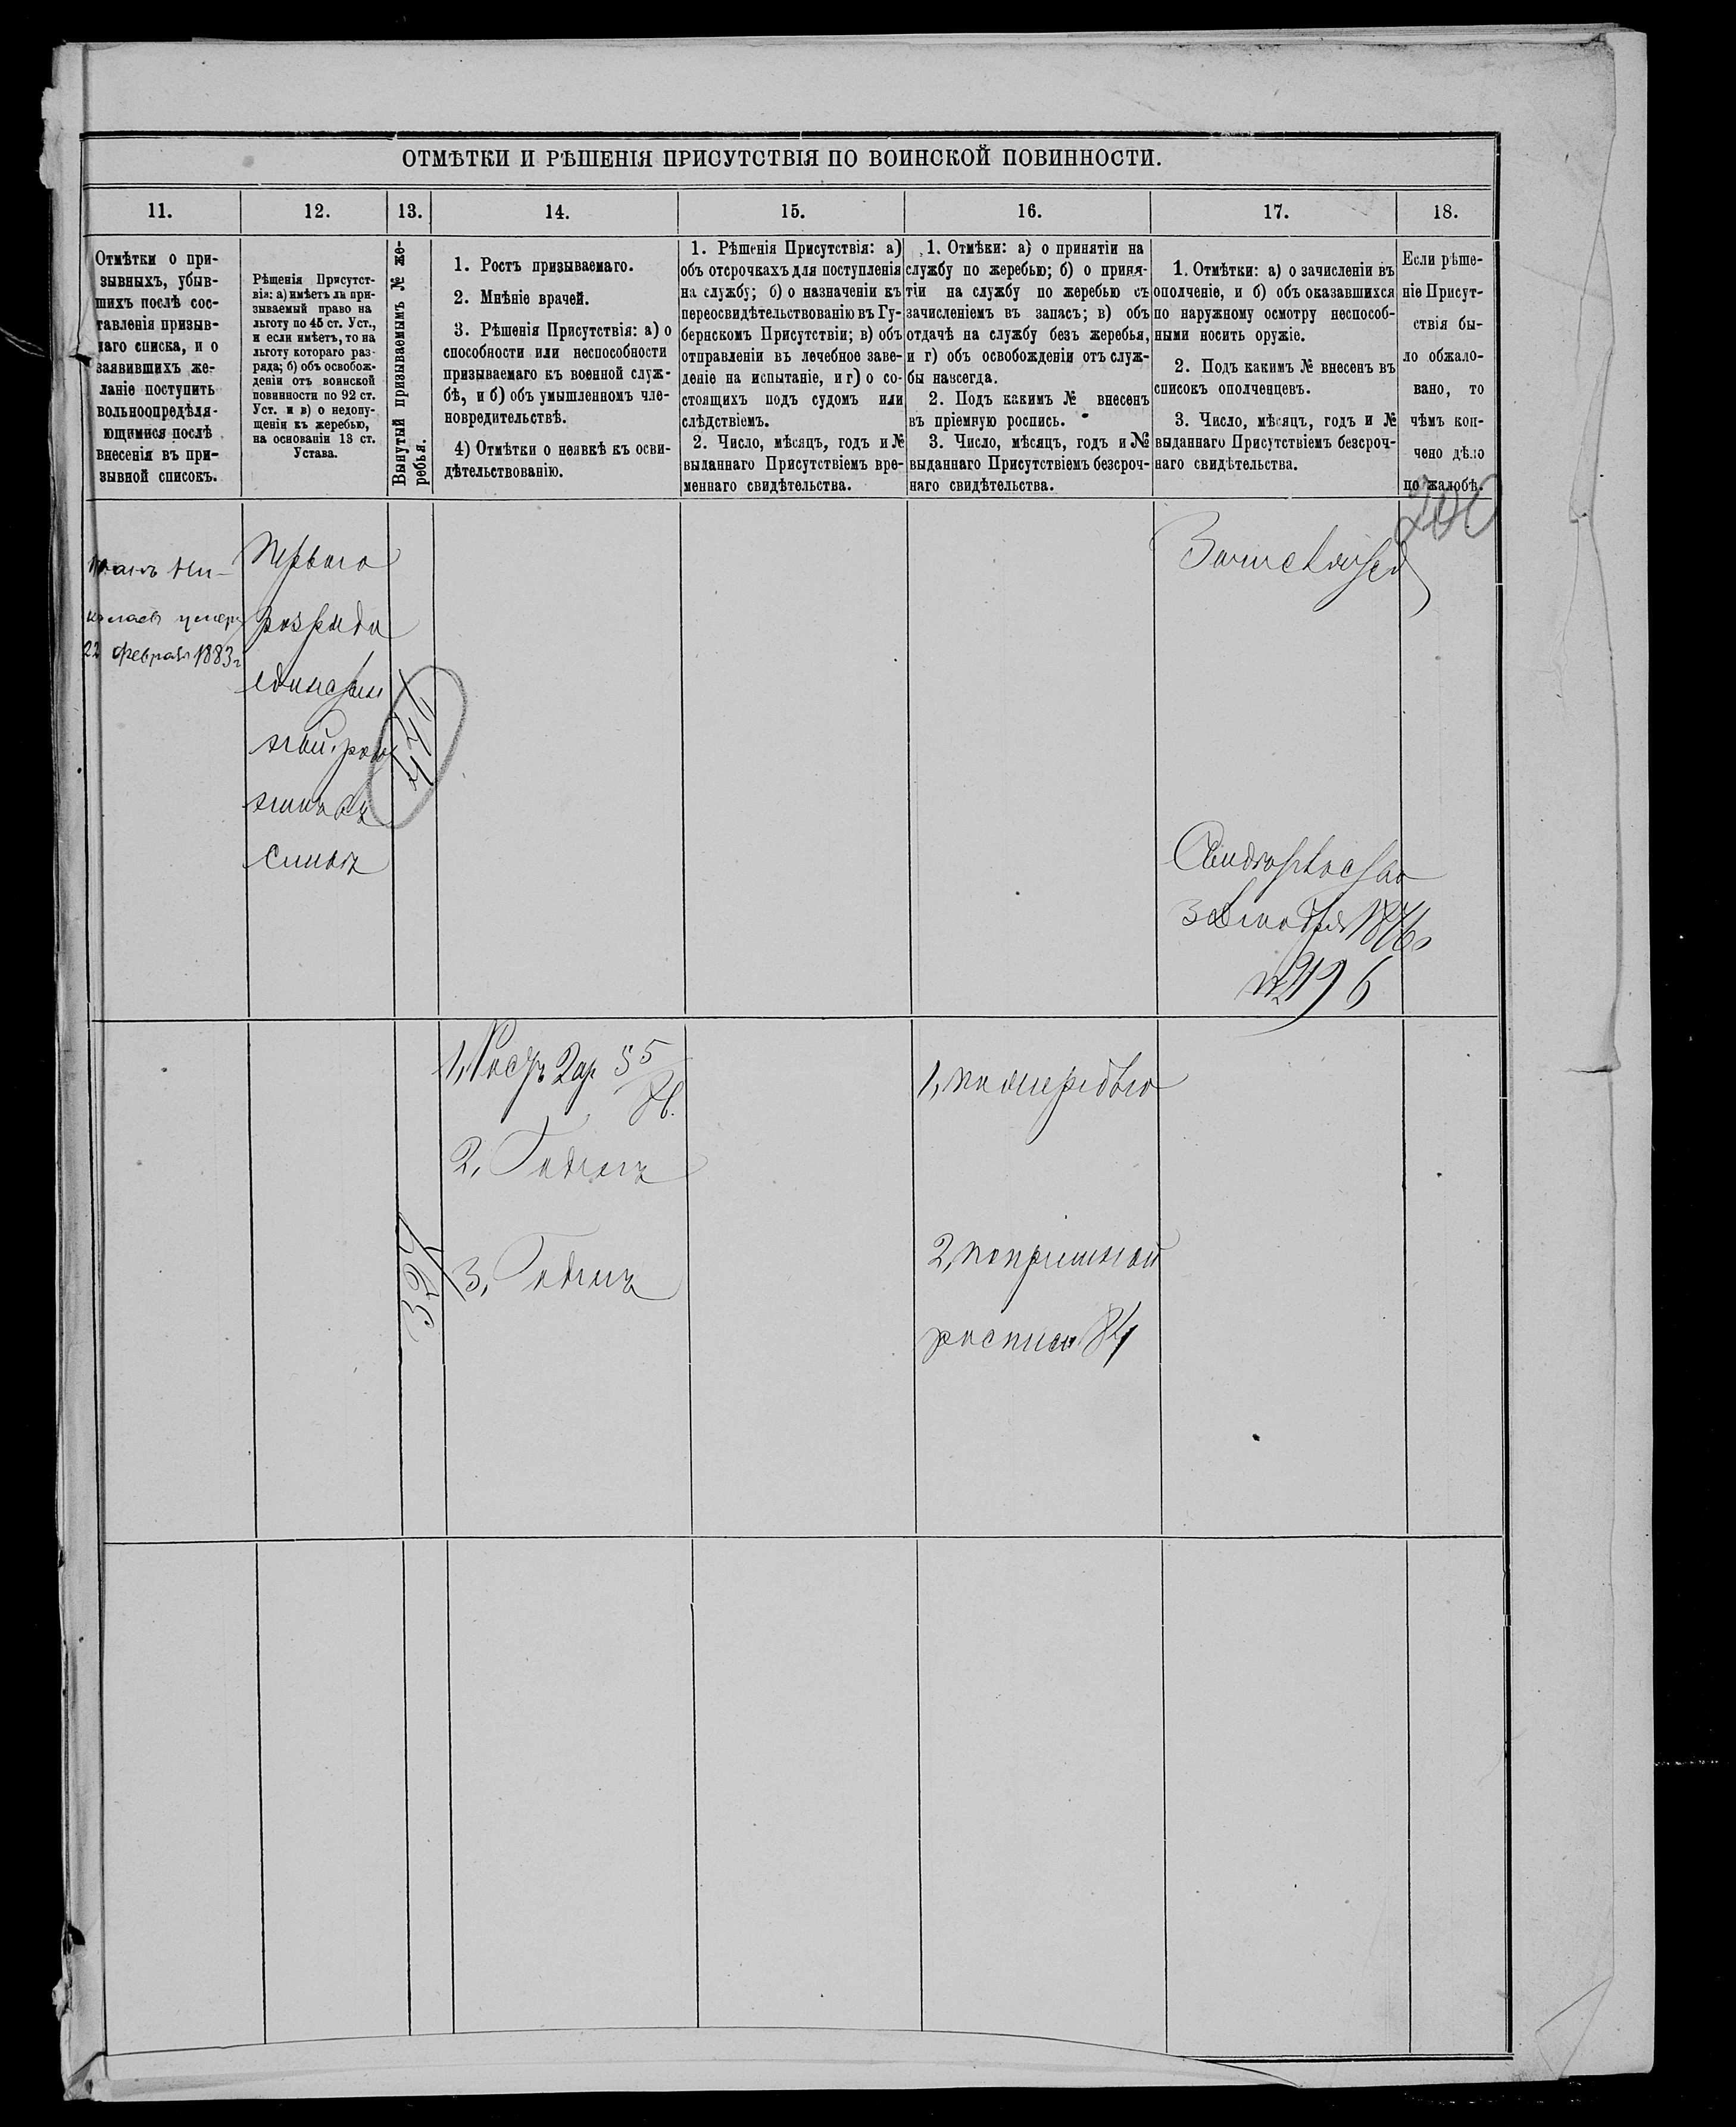 ОТМѢТКИ И РѢШЕНІЯ ПРИСУТСТВІЯ ПО ВОИНСКОЙ ПОВИННОСТИ.
11.
12.
13.
14.
15.
16.
17.
18.
Отмѣтки о при-
зывныхъ, убыв-
шихъ послѣ сос-
тавленія призыв-
наго списка, и о
заявившихъ же-
ланіе поступить
вольноопредѣля-
ющимися послѣ
внесенія въ при-
зывной списокъ.
Рѣшенія Присутст-
вія: а) имѣетъ ли при-
зываемый право на
льготу по 45 ст. Уст.,
и если имѣетъ, то на
льготу котораго раз-
ряда; б) объ освобож-
деніи отъ воинской
повинности по 92 ст.
Уст. и в) о недопу-
щеніи къ жеребью,
на основаніи 13 ст.
Устава.
Вынутый призываемымъ № же-
ребья.
1. Ростъ призываемаго.
2. Мнѣніе врачей.
3. Рѣшенія Присутствія: а) о
способности или неспособности
призываемаго къ военной служ-
бѣ, и б) объ умышленномъ чле-
новредительствѣ.
4) Отмѣтки о неявкѣ къ осви-
дѣтельствованію.
1. Рѣшенія Присутствія: а)
объ отсрочкахъ для поступленія
на службу; б) о назначеніи къ
переосвидѣтельствованію въ Гу-
бернскомъ Присутствіи; в) объ
отправленіи въ лечебное заве-
деніе на испытаніе, и г) о со-
стоящихъ подъ судомъ или
слѣдствіемъ.
2. Число, мѣсяцъ, годъ и №
выданнаго Присутствіемъ вре-
меннаго свидѣтельства.
1. Отмѣки: а) о принятіи на
службу по жеребью; б) о приня-
тіи на службу по жеребью съ
зачисленіемъ въ запасъ; в) объ
отдачѣ на службу безъ жеребья,
и г) объ освобожденіи отъ служ-
бы навсегда.
2. Подъ какимъ № внесенъ
въ пріемную роспись.
3. Число, мѣсяцъ, годъ и №
выданнаго Присутствіемъ безсроч-
наго свидѣтельства.
1. Отмѣтки: а) о зачисленіи въ
ополченіе, и б) объ оказавшихся
по наружному осмотру неспособ-
ными носить оружіе.
2. Подъ какимъ № внесенъ въ
списокъ ополченцевъ.
3. Число, мѣсяцъ, годъ и №
выданнаго Присутствіемъ безсроч-
наго свидѣтельства.
Если рѣше-
ніе Присут-
ствія бы-
ло обжало-
вано, то
чѣмъ кон-
чено дѣло
по жалобѣ.
200
22 февраля 1883г
Перваго
розряда
сынъ
Свидѣтельство
№ 2196
1, Ростъ 2 ар 5 5/8 в.
2, Годенъ
3, Годенъ
324
2, попріемной
росписи 84